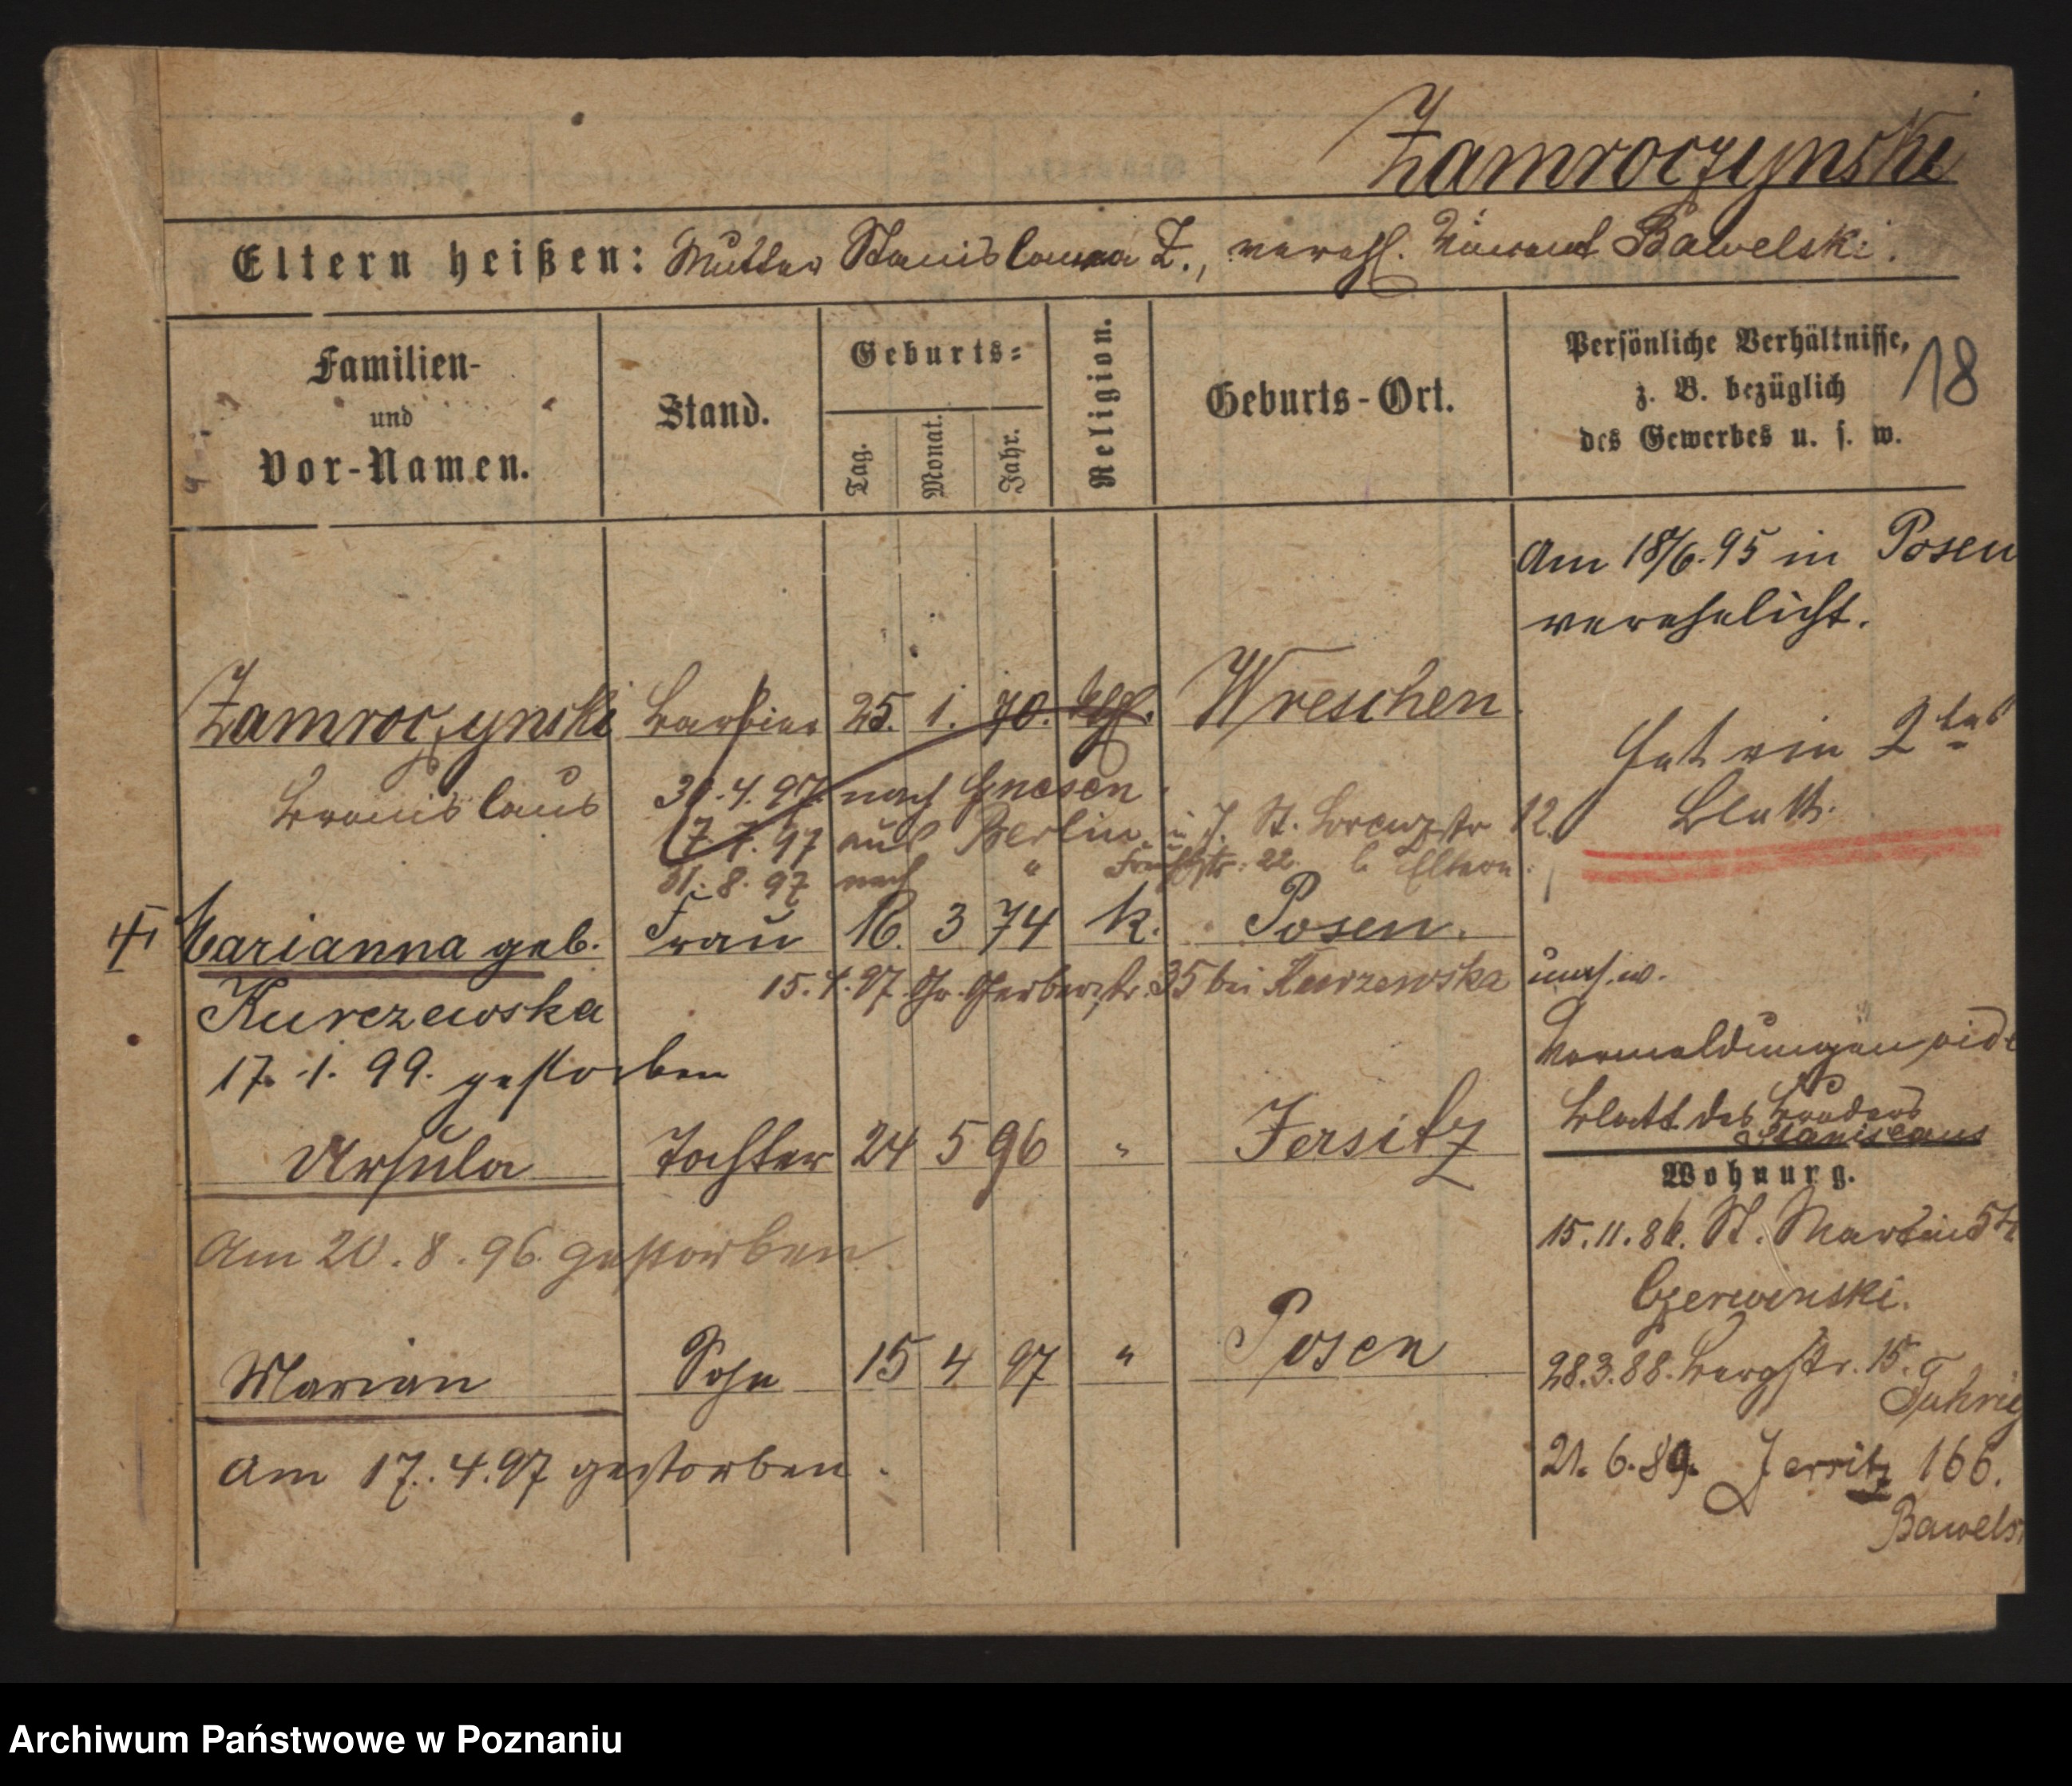 Zamroczynski
Eltern heißen: Mutter Stanislawa Z., verehl. Vincent Bawelski.
Familien-
und
Vor-Namen.
Stand.
Geburts-
Tag.
Monat.
Jahr.
Religion.
Geburts-Ort.
Persönliche Verhältnisse,
z. B. bezüglich
des Gewerbes u. s. w.
18
Am 18/6. 95 in Posen
verehelicht.
Zamroczynski Barbier 25. 1. 70. kath. Wreschen
Hat ein 2tes
Blatt.
Bronislaus
30.4.97. nach Gnesen
7.7.97 aus Berlin St. Lorenzstr 12.
31.8.97 nach " 22. b. Eltern.
Marianna geb. Frau 16. 3 74 k. Posen.
Kurczewska
15.4.97 Gr. Gerberstr. 35 bei Kurzewska
17.1.99. gestorben
Vormeldungen
Blatt des Bruders
Stanislaus
Ursula Tochter 24 5 96 " Jersitz
Am 20.8.96. gestorben
Wohnung.
15.11.86. St. Martin
Czerwinski.
Marian Sohn 15 4 97 " Posen
28.3.88. Bergstr. 15.
Am 17.4.97 gestorben.
21.6.89. Jersitz 166.
Bawels
Archiwum Państwowe w Poznaniu